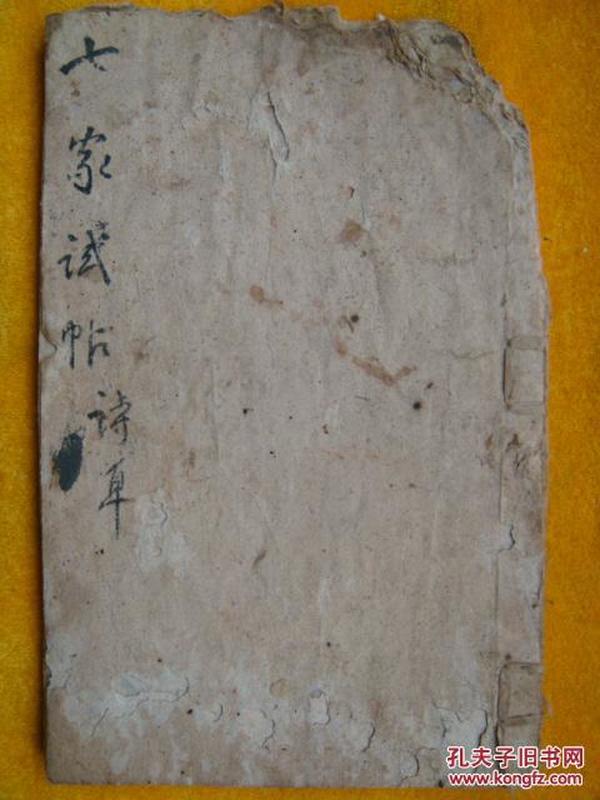 七家试帖
诗草
孔夫子旧书网
www.kongfz.com